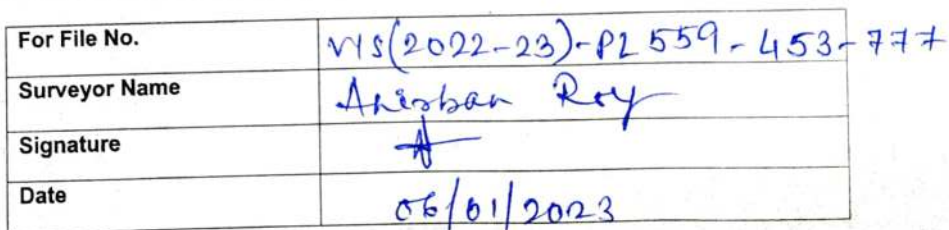 For File No. VIS(2022-23)-PL559-453-777
Surveyor Name Anirban Roy
Signature
Date 06/01/2023